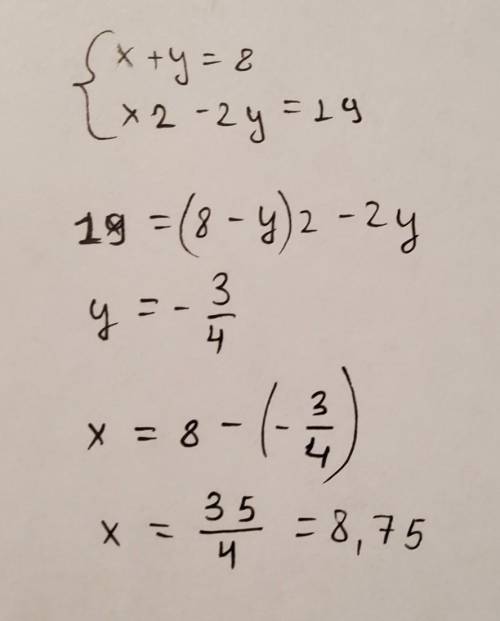 { x + y = 8
x2 - 2y = 19
19 = (8 - y)2 - 2y
y = - 3/4
x = 8 - (- 3/4)
x = 35/4 = 8,75